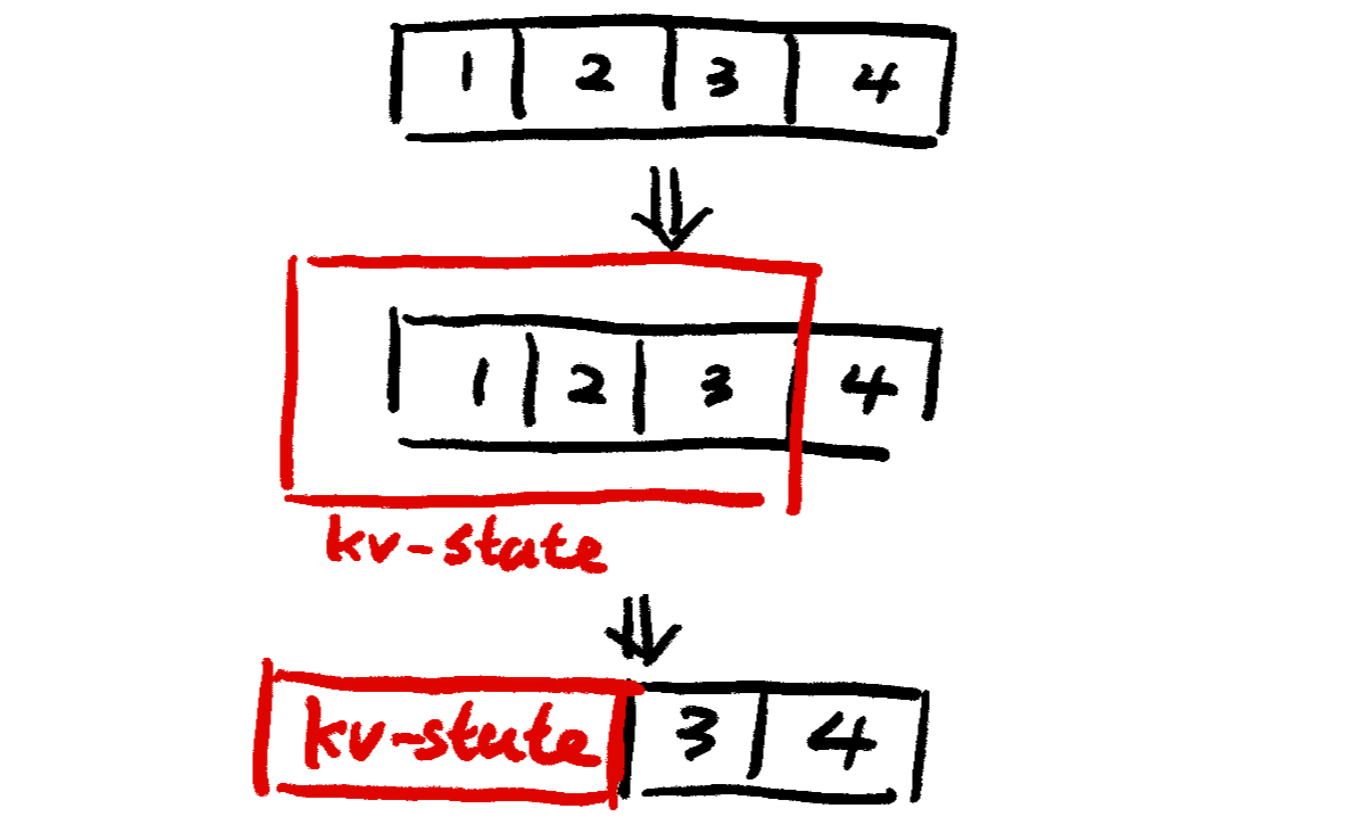 1 2 3 4
1 2 3 4
kv-state
kv-state 3 4